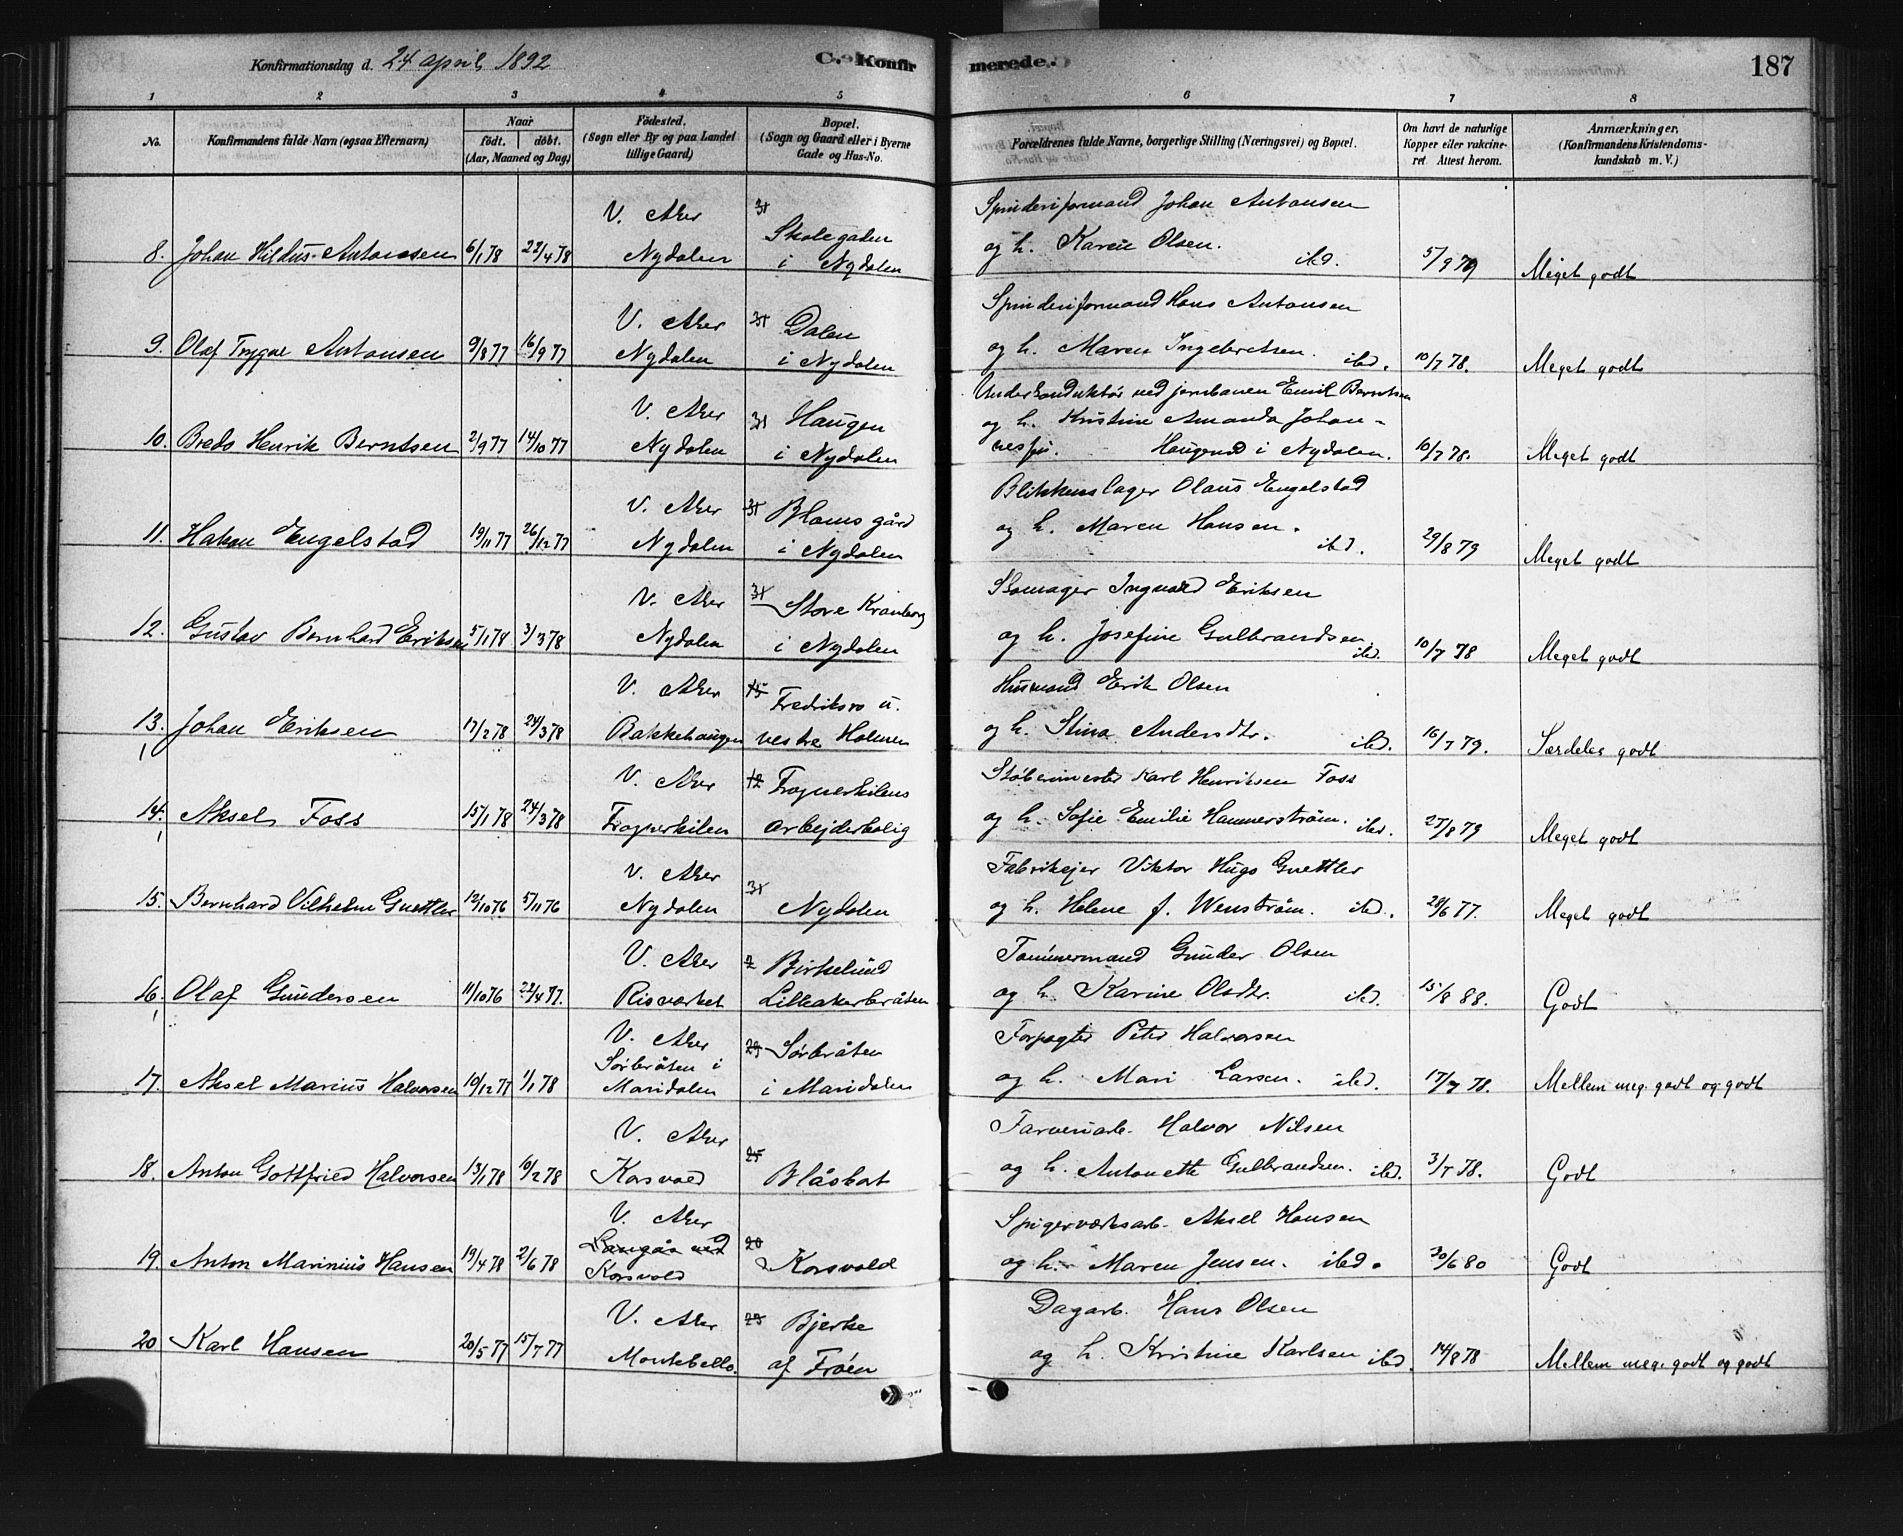 Konfirmationsdag d. 24 april 1892
C. Konfir
merede.
187
1 2 3 4 5 6 7 8
No.
Konfirmandens fulde Navn (ogsaa Efternavn)
Naar
født. døbt.
(Aar, Maaned og Dag)
Fødested.
(Sogn eller By og paa Landet
tillige Gaard)
Bopæl.
(Sogn og Gaard eller i Byerne
Gade og Hus-No.
Forældrenes fulde Navne, borgerlige Stilling (Næringsvei) og Bopæl.
Om havt de naturlige
Kopper eller vakcine-
ret Attest herom.
Anmærkninger.
(Konfirmandens Kristendoms-
kundskab m. V.)
V. Aker 31 Spinderiformand Johan Antonsen
Skolegaden og h. Karen Olsen. ibd.
8. Johan Hildus Antonsen 6/1 78 22/4 78 Nydalen i Nydalen 5/9 79 Meget godt
V. Aker 31 Dalen Spinderiformand Hans Antonsen
9. Olaf Trygve Antonsen 9/8 77 16/9 77 Nydalen i Nydalen og h. Maren Ingebretsen. ibd. 10/7 78. Meget godt
V. Aker 31 Haugen Underkonduktør ved jernbanen Emil Berntsen
og h. Kristine Amanda Johan-
10. Bredo Henrik Berntsen 2/9 77 14/10 77 Nydalen i Nydalen nesen. Haugen i Nydalen. 10/7 78. Meget godt
V. Aker 31 Bloms gård Blikkenslager Olaus Engelstad
11. Hakon Engelstad 19/11 77 26/12 77 Nydalen i Nydalen og h. Maren Hansen. ibd. 29/8 79 Meget godt
V. Aker 31 Store Kranberg Skomager Ingvald Eriksen
12. Gustav Bernhard Eriksen 5/1 78 3/3 78 Nydalen i Nydalen og h. Josefine Gulbrandsen ibd. 10/7 78 Meget godt
V. Aker 15 Fredriksro u. Husmand Erik Olsen
13. Johan Eriksen 17/2 78 24/3 78 Bakkehaugen vestre Holmen og h. Stina Andersdtr. ibd. 16/7 79. Særdeles godt
V. Aker 12 Frognerkilens Støberimester Karl Henriksen Foss
14. Aksel Foss 15/1 78 24/3 78 Frognerkilen arbejderbolig og h. Sofie Emilie Hammerstrøm. ibd. 27/8 79 Meget godt
V. Aker 31 Fabrikejer Viktor Hugo Guettler
15. Bernhard Vilhelm Guettler 12/10 76 5/11 76 Nydalen Nydalen og h. Helene f. Wenstrøm. ibd. 28/6 77. Meget godt
V. Aker 2 Birkelund Tømmermand Gunder Olsen
16. Olaf Gundersen 11/10 76 22/4 77. Risværket Lilleakerbråten og h. Karine Olsdtr. ibd. 15/8 88. Godt
V. Aker 29 Sørbråten Forpagter Peter Halvorsen
Sørbråten i
17. Aksel Marius Halvorsen 10/12 77 1/1 78 Maridalen i Maridalen og h. Mari Larsen. ibd. 17/7 78. Mellem meg. godt og godt
V. Aker 25 Farveriarb. Halvor Nilsen
18. Anton Gottfried Halvorsen 13/1 78 10/2 78 Korsvold Blåsbort og h. Antonette Gulbrandsen. ibd. 3/7 78. Godt
V. Aker 20 Spigerværksarb. Aksel Hansen
Langåa ved
19. Anton Marinius Hansen 19/4 78 2/6 78 Korsvold Korsvold og h. Maren Jensen. ibd. 30/6 80 Godt
V. Aker 23 Bjerke Dagarb. Hans Olsen
20 Karl Hansen 20/5 77 15/7 77 Montebello. af Frøen og h. Kristine Karlsen ibd. 14/8 78 Mellem meg. godt og godt